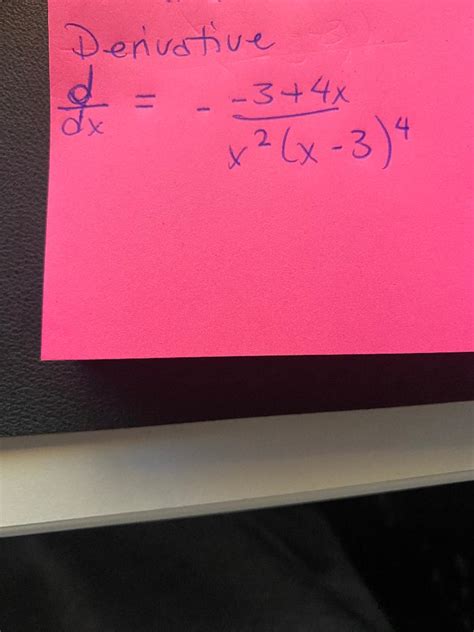 Derivative
d/dx = - (-3+4x)/(x²(x-3)⁴)